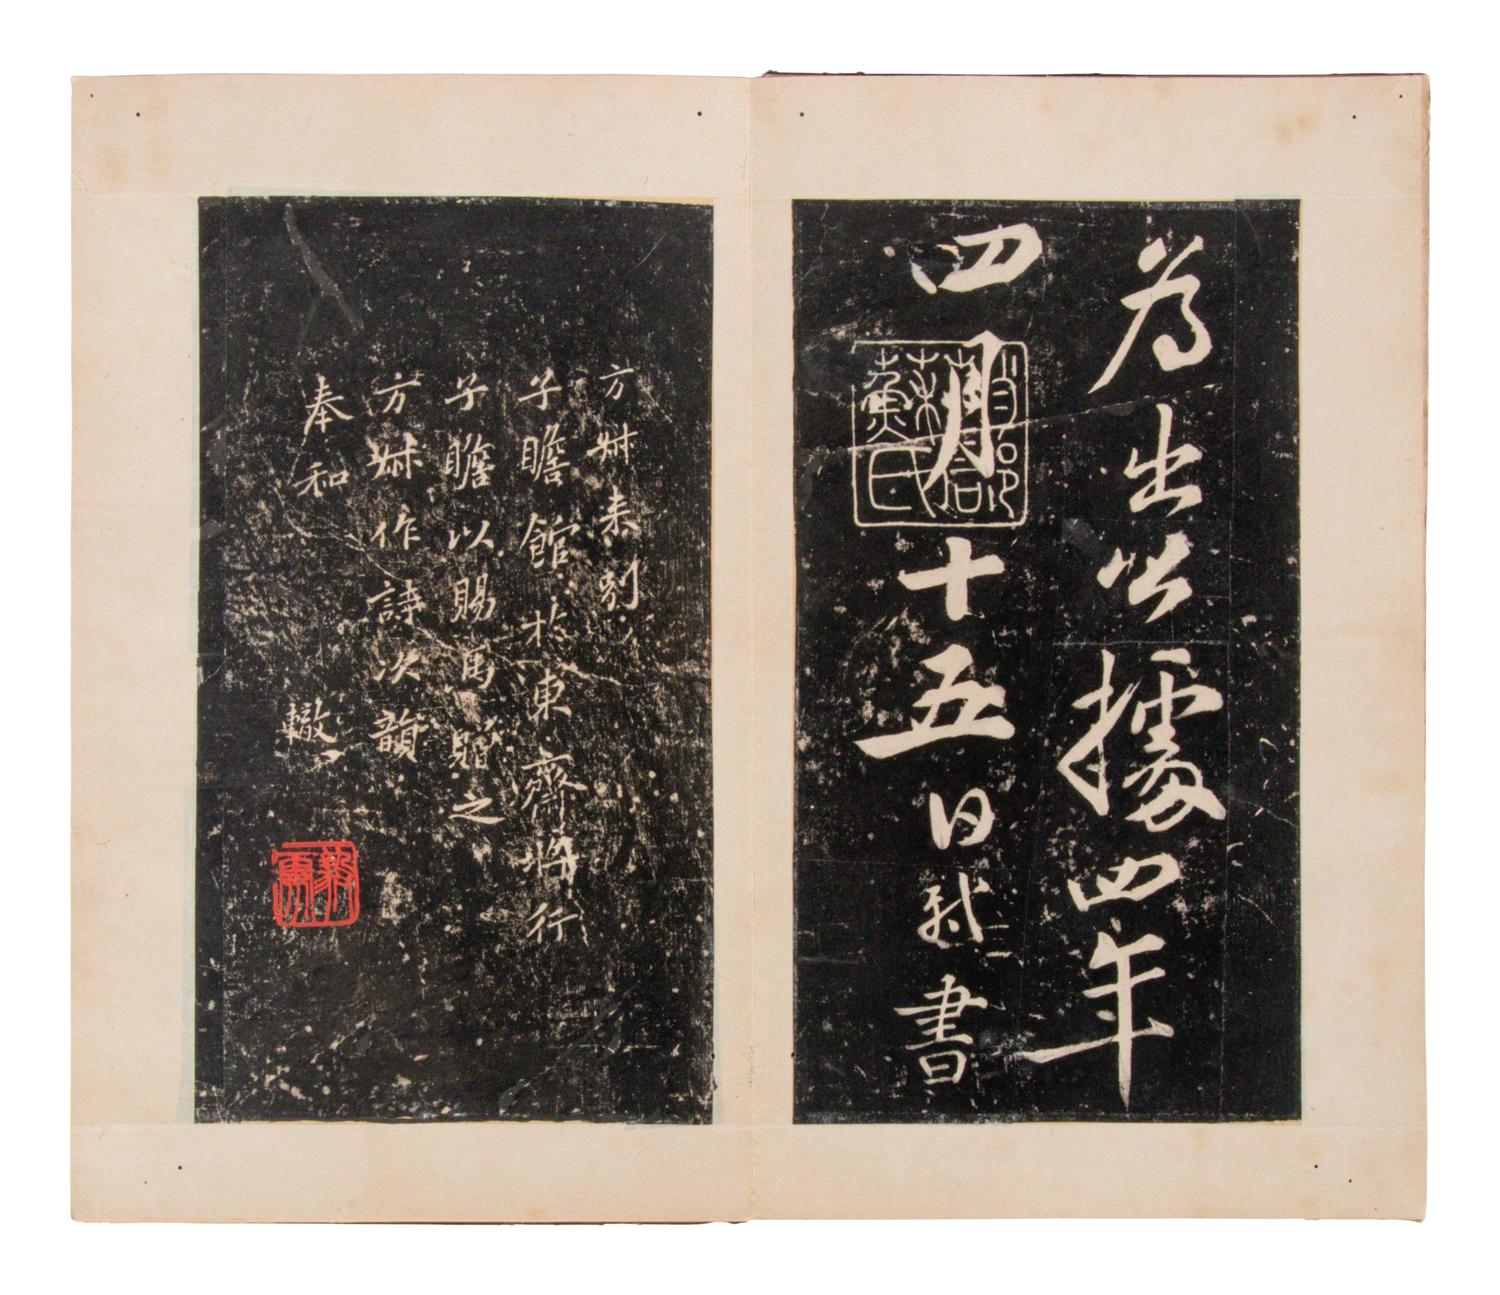 為出公據四年
四月十五日軾書
方叔来別
子瞻館於東齋將行
子瞻以賜馬贈之
方叔作詩次韻
奉和 轍